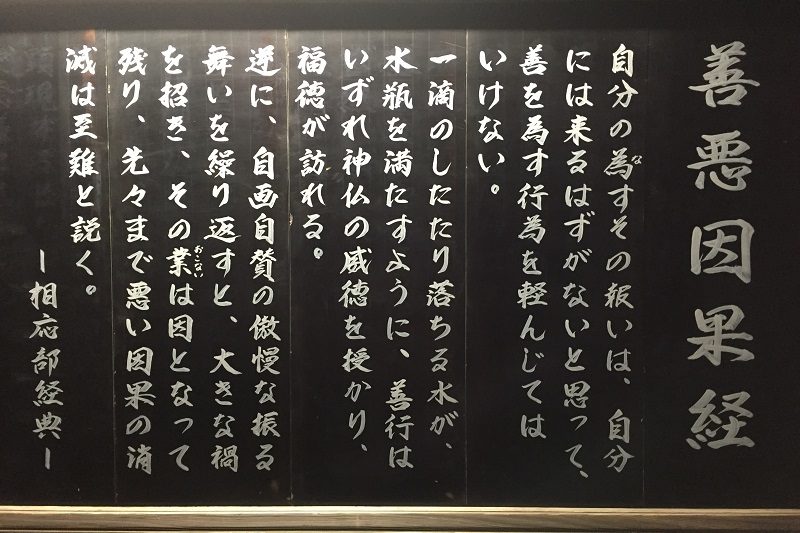 善悪因果経
自分の為すその報いは、自分
には来るはずがないと思って、
善を為す行為を軽んじては
いけない。
一滴のしたたり落ちる水が、
水瓶を満たすように、善行は
いずれ神仏の威徳を授かり、
福徳が訪れる。
逆に、自画自賛の傲慢な振る
舞いを繰り返すと、大きな禍
を招き、その業は因となって
残り、先々まで悪い因果の消
滅は至難と説く。
ー相応部経典ー